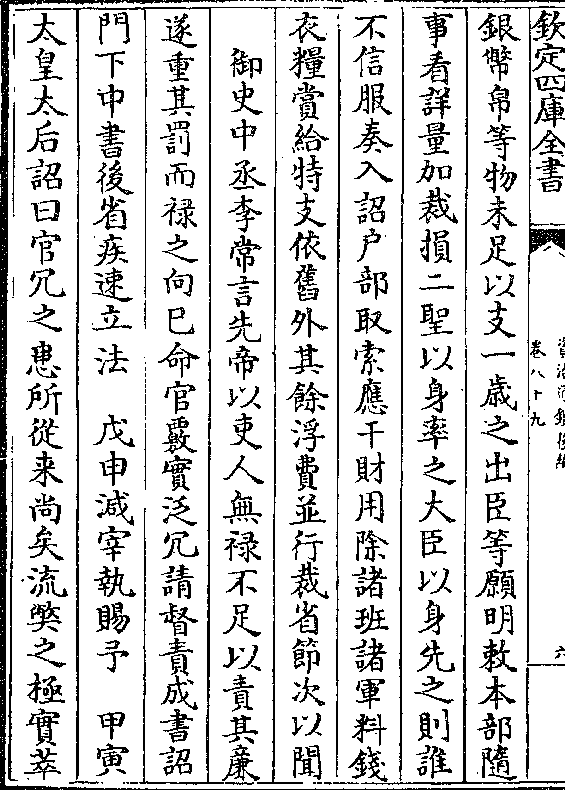 欽定四庫全書
卷八十九
六
銀幣帛等物未足以支一歳之出臣等願明敕本部隨
事看詳量加裁損二聖以身率之大臣以身先之則誰
不信服奏入詔户部取索應干財用除諸班諸軍料錢
衣糧賞給特支依舊外其餘浮費並行裁省節次以聞
御史中丞李常言先帝以吏人無禄不足以責其廉
遂重其罰而禄之向已命官覈實泛冗請督責成書詔
門下中書後省疾速立法　戊申減宰執賜予　甲寅
太皇太后詔曰官冗之患所從来尚矣流弊之極實萃